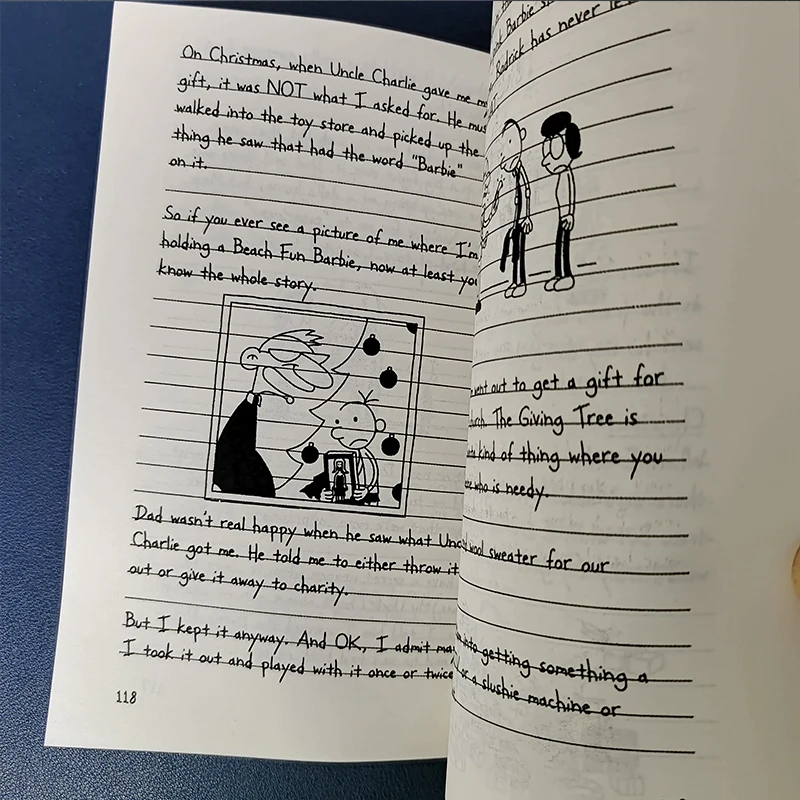 On Christmas, when Uncle Charlie gave me
gift, it was NOT what I asked for. He
walked into the toy store and picked up the
thing he saw that had the word "Barbie"
on it.
So if you ever see a picture of me where I'm
holding a Beach Fun Barbie, now at least you
know the whole story.
Dad wasn't real happy when he saw what
Charlie got me. He told me to either throw it
out or give it away to charity.
But I kept it anyway. And OK, I admit
I took it out and played with it once or twice
118
Barbie
Rodrick has never
out to get a gift for
The Giving Tree is
kind of thing where you
who is needy.
wool sweater for our
into getting something a
or a slushie machine or